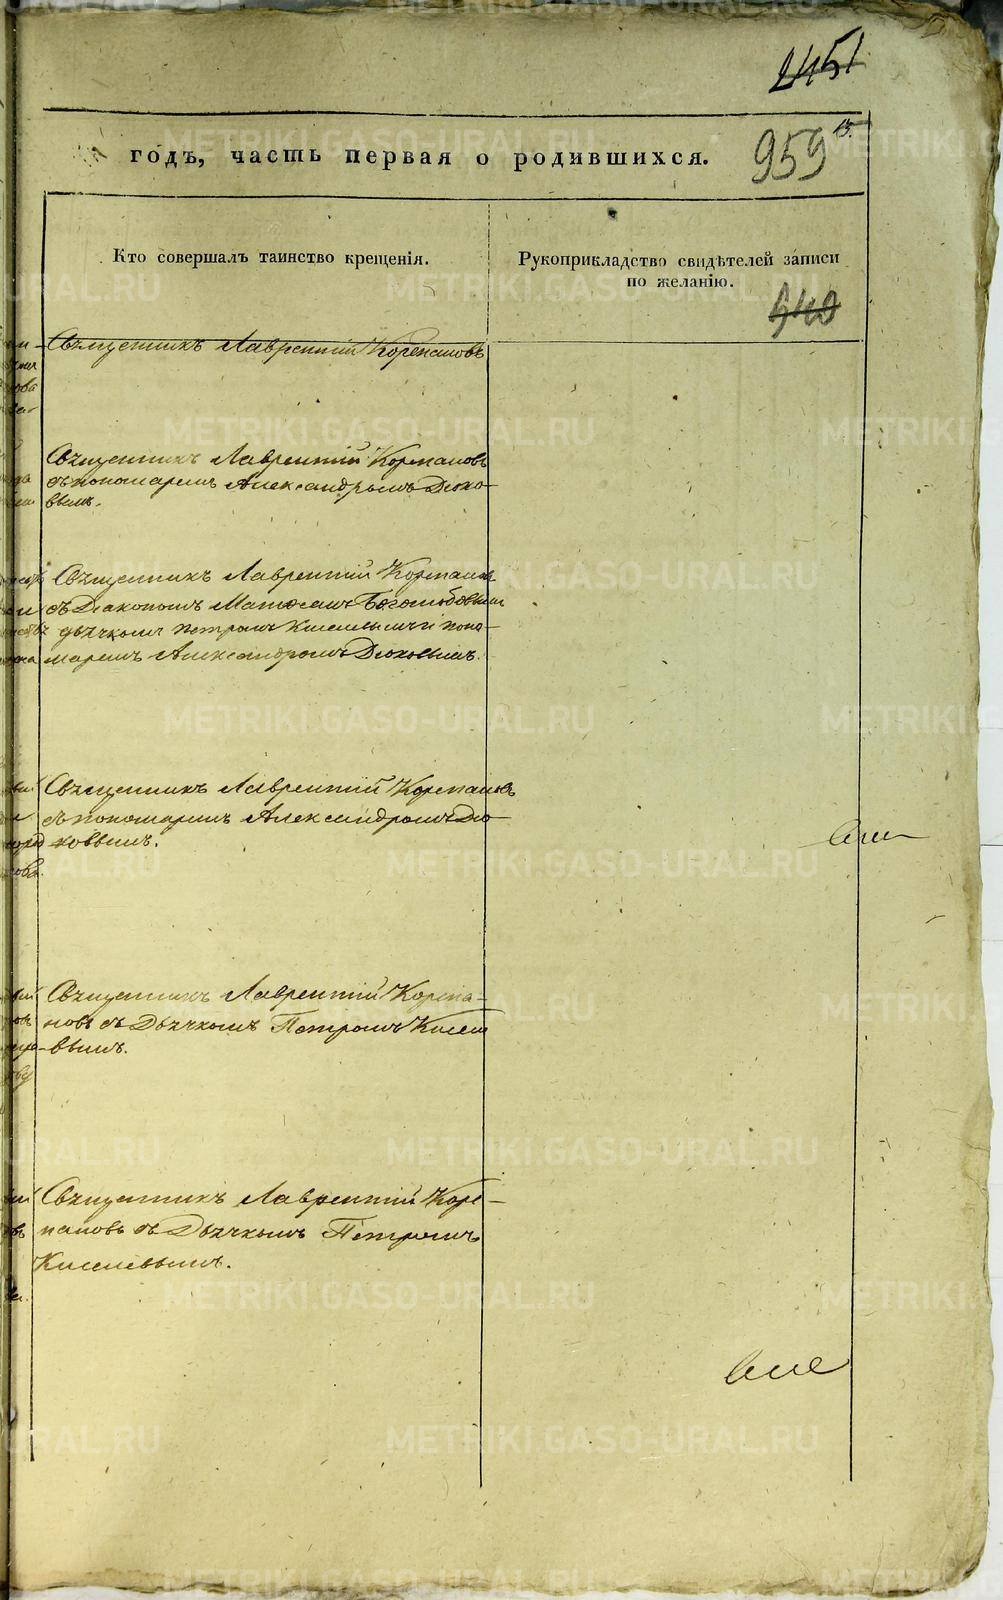 2451
годъ, часть первая о родившихся.
959
15.
Кто совершалъ таинство крещенія.
Рукоприкладство свидѣтелей записи
по желанію.
640
Священникъ Лаврентій Корепановъ
Священникъ Лаврентій Корепановъ
съ пономаремъ Александромъ Дюко-
вымъ.
Священникъ Лаврентій Корепановъ
съ Діакономъ Матвеемъ Боголюбовымъ
дьячкомъ Петромъ Киселевымъ и поно-
маремъ Александромъ Дюковымъ.
Священникъ Лаврентій Корепановъ
съ пономаремъ Александромъ Дю-
ковымъ.
Священникъ Лаврентій Корепа-
новъ съ Дьячкомъ Петромъ Кисел
евымъ.
Священникъ Лаврентій Коре-
пановъ съ Дьячкомъ Петромъ
Киселевымъ.
METRIKI.GASO-URAL.RU